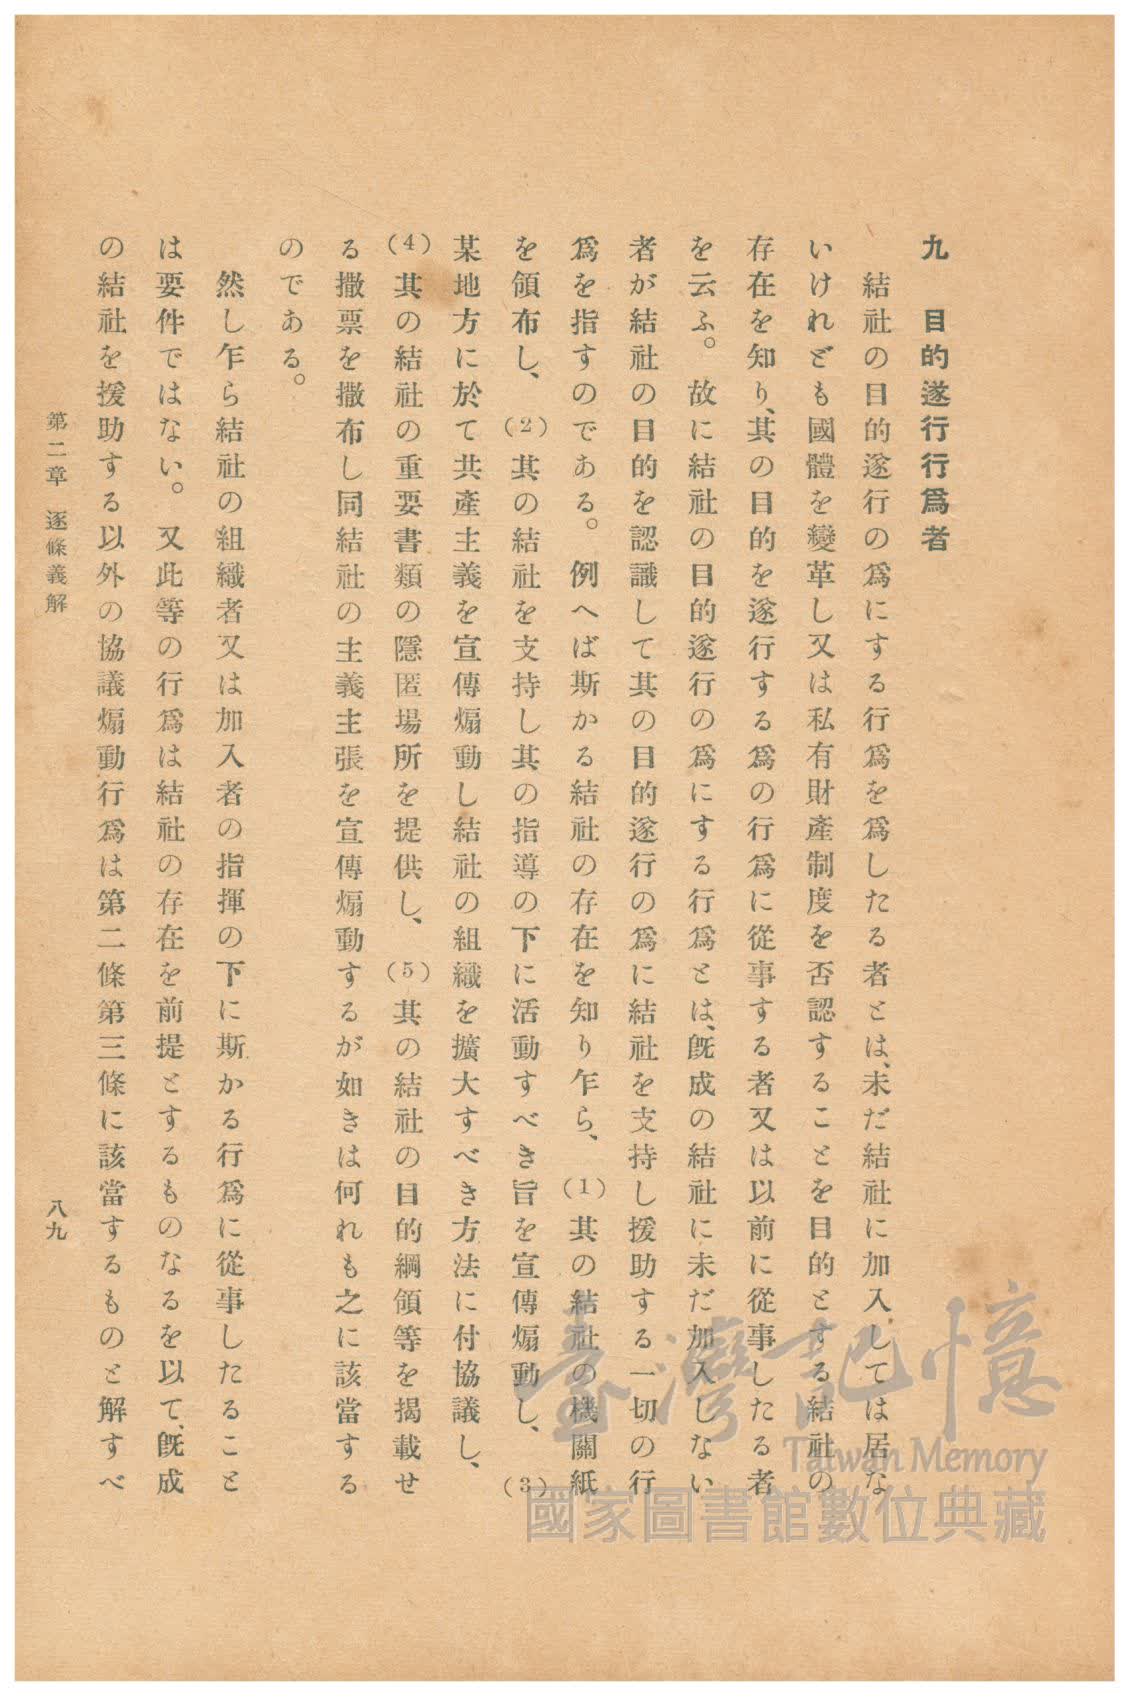 九　目的遂行行爲者
結社の目的遂行の爲にする行爲を爲したる者とは、未だ結社に加入しては居な
いけれども國體を變革し又は私有財產制度を否認することを目的とする結社の
存在を知り、其の目的を遂行する爲の行爲に從事する者又は以前に從事したる者
を云ふ。故に結社の目的遂行の爲にする行爲とは、既成の結社に未だ加入しない
者が結社の目的を認識して其の目的遂行の爲に結社を支持し援助する一切の行
爲を指すのである。例へば斯かる結社の存在を知り乍ら、(1)其の結社の機關紙
を領布し、(2)其の結社を支持し其の指導の下に活動すべき旨を宣傳煽動し、(3)
某地方に於て共產主義を宣傳煽動し結社の組織を擴大すべき方法に付協議し、
(4)其の結社の重要書類の隱匿場所を提供し、(5)其の結社の目的綱領等を揭載せ
る撒票を撒布し同結社の主義主張を宣傳煽動するが如きは何れも之に該當する
のである。
然し乍ら結社の組織者又は加入者の指揮の下に斯かる行爲に從事したること
は要件ではない。又此等の行爲は結社の存在を前提とするものなるを以て、既成
の結社を援助する以外の協議煽動行爲は第二條第三條に該當するものと解すべ
第二章 逐條義解
八九
臺灣記憶
Taiwan Memory
國家圖書館數位典藏